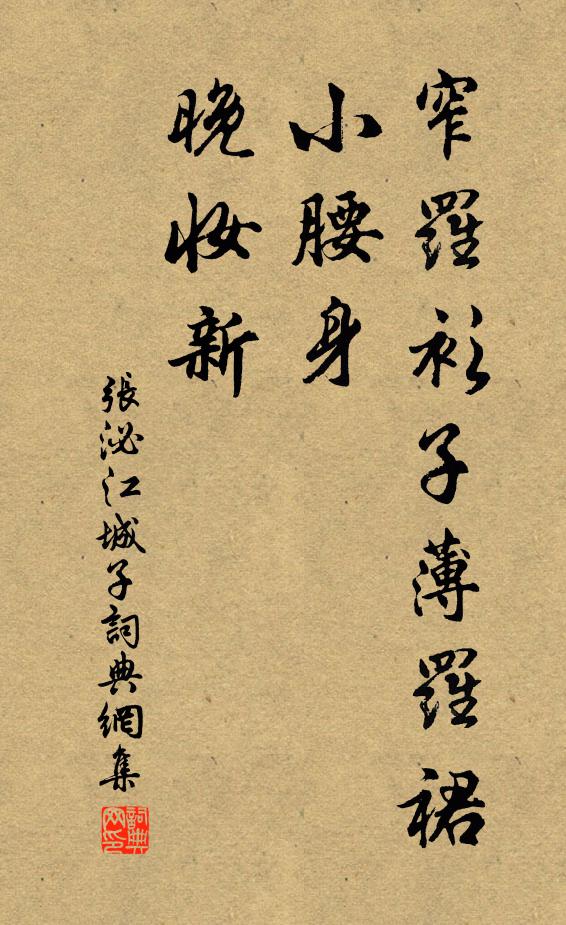 窄羅衫子薄羅裙
小腰身
晚妝新
張泌江城子詞典網集
詞典网印